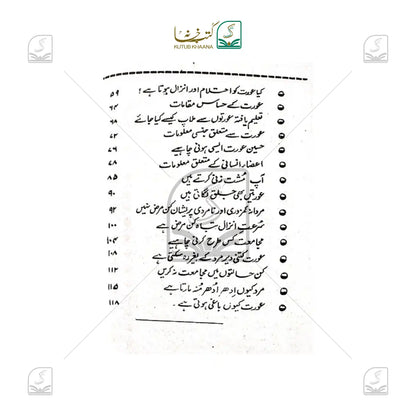 کتب خانہ
KUTUB KHAANA
کیا عورت کو احتلام اور انزال ہوتا ہے؟ ۵۹
عورت کے حساس مقامات ۶۴
تعلیم یافتہ عورتوں سے ملاپ کیسے کیا جائے ۶۸
عورت سے متعلق جنسی معلومات ۷۲
حسین عورت ایسی ہونی چاہیے ۷۶
اعضاء انسانی کے متعلق معلومات ۷۸
آپ مشت زنی کرتے ہیں ۸۵
عورتیں بھی جلق لگاتی ہیں ۹۰
مردانہ کمزوری اور نامردی پریشان کن مرض نہیں ۹۲
سرعت انزال تباہ کن مرض ہے ۱۰۰
مجامعت کس طرح کرنی چاہیے ۱۰۴
عورت کتنی دیر مرد کے بغیر رہ سکتی ہے ۱۰۸
کن حالتوں میں مجامعت نہ کریں ۱۱۲
مرد کیوں اِدھر اُدھر منہ مارتا ہے ۱۱۵
عورت کیوں باغی ہوتی ہے۔ ۱۱۸